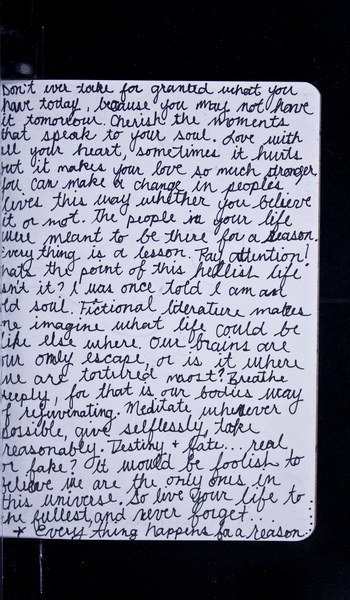 Don't ever take for granted what you
have today, because you may not have
it tomorrow. Cherish the moments
that speak to your soul. Love with
all your heart, sometimes it hurts
but it makes your love so much stronger
You can make a change in peoples
lives this way whether you believe
it or not. The people in your life
were meant to be there for a reason.
Everything is a lesson. Pay Attention!
thats the point of this hellish life
isn't it? I was once told I am an
old soul. Fictional literature makes
me imagine what life could be
like else where. Our brains are
our only escape, or is it where
we are tortured most? Breathe
deeply, for that is our bodies way
of rejuvinating. Meditate whenever
possible, give selflessly, take
reasonably. Destiny + fate... real
or fake? It would be foolish to
believe we are the only ones in
this universe. So live your life to
the fullest, and never forget...
* Every thing happens for a reason